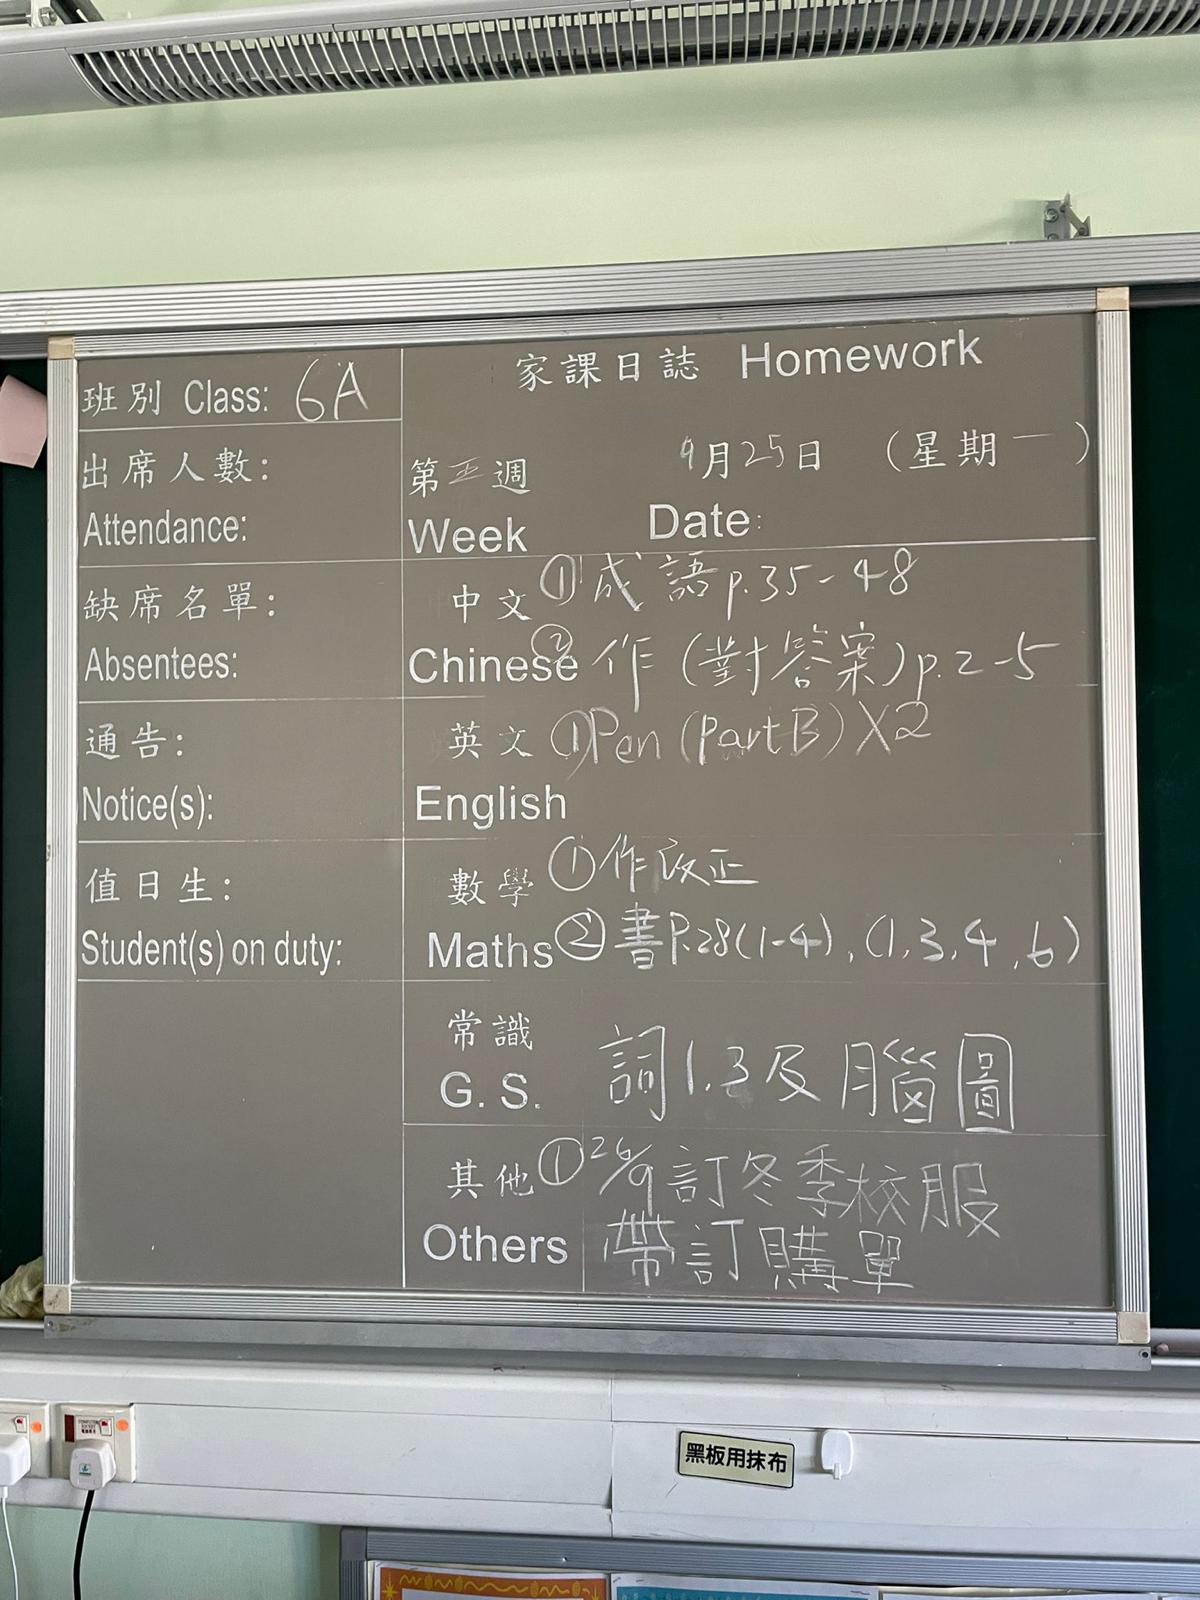 班別 Class: 6A
出席人數:
Attendance:
缺席名單:
Absentees:
通告:
Notice(s):
值日生:
Student(s) on duty:
家課日誌 Homework
第五週 9月25日 (星期一)
Week Date:
中文 ①成語p.35-48
Chinese ②作(對答案)p.2-5
英文 ①Pen(Part B)X2
English
數學 ①作改正
Maths ②書P.28(1-4),(1,3,4,6)
常識
G. S. 詞1.3及腦圖
其他 ①26/9訂冬季校服
Others 帶訂購單
黑板用抹布